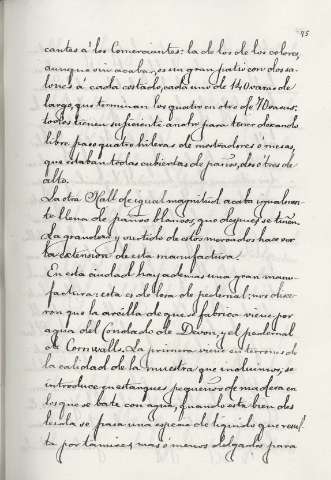 95
cantes á los Comerciantes: la de los de los colores,
aunque sin acabar, es un gran patio con dos sa-
lones á cada costado, cada uno de 140 varas de
largo, que terminan los quatro en otro de 70 varas;
todos tienen suficiente ancho para tener dexando
libre paso quatro hileras de mostradores ó mesas,
que estaban todas cubiertas de paños, dos ó tres de
alto.
La otra Hall de igual magnitud acaba igualmen-
te llena de paños blancos, que despues se tiñen.
La grandeza y surtido de estos mercados hace ver
la extension de esta manufactura.
En esta ciudad hay ademas una gran manu-
factura: esta es de loza de pedernal; nos dixe-
ron que la arcilla de que se fabrica viene por
agua del Condado de Devon, y el pedernal
de Cornwalls. La primera viene en terrones de
la calidad de la muestra que incluimos, se
introduce en estanques pequeños de madera en
los que se bate con agua, quando está bien des
leida se pasa una especie de liquido que resul-
ta por tamices, mas ó menos delgados para